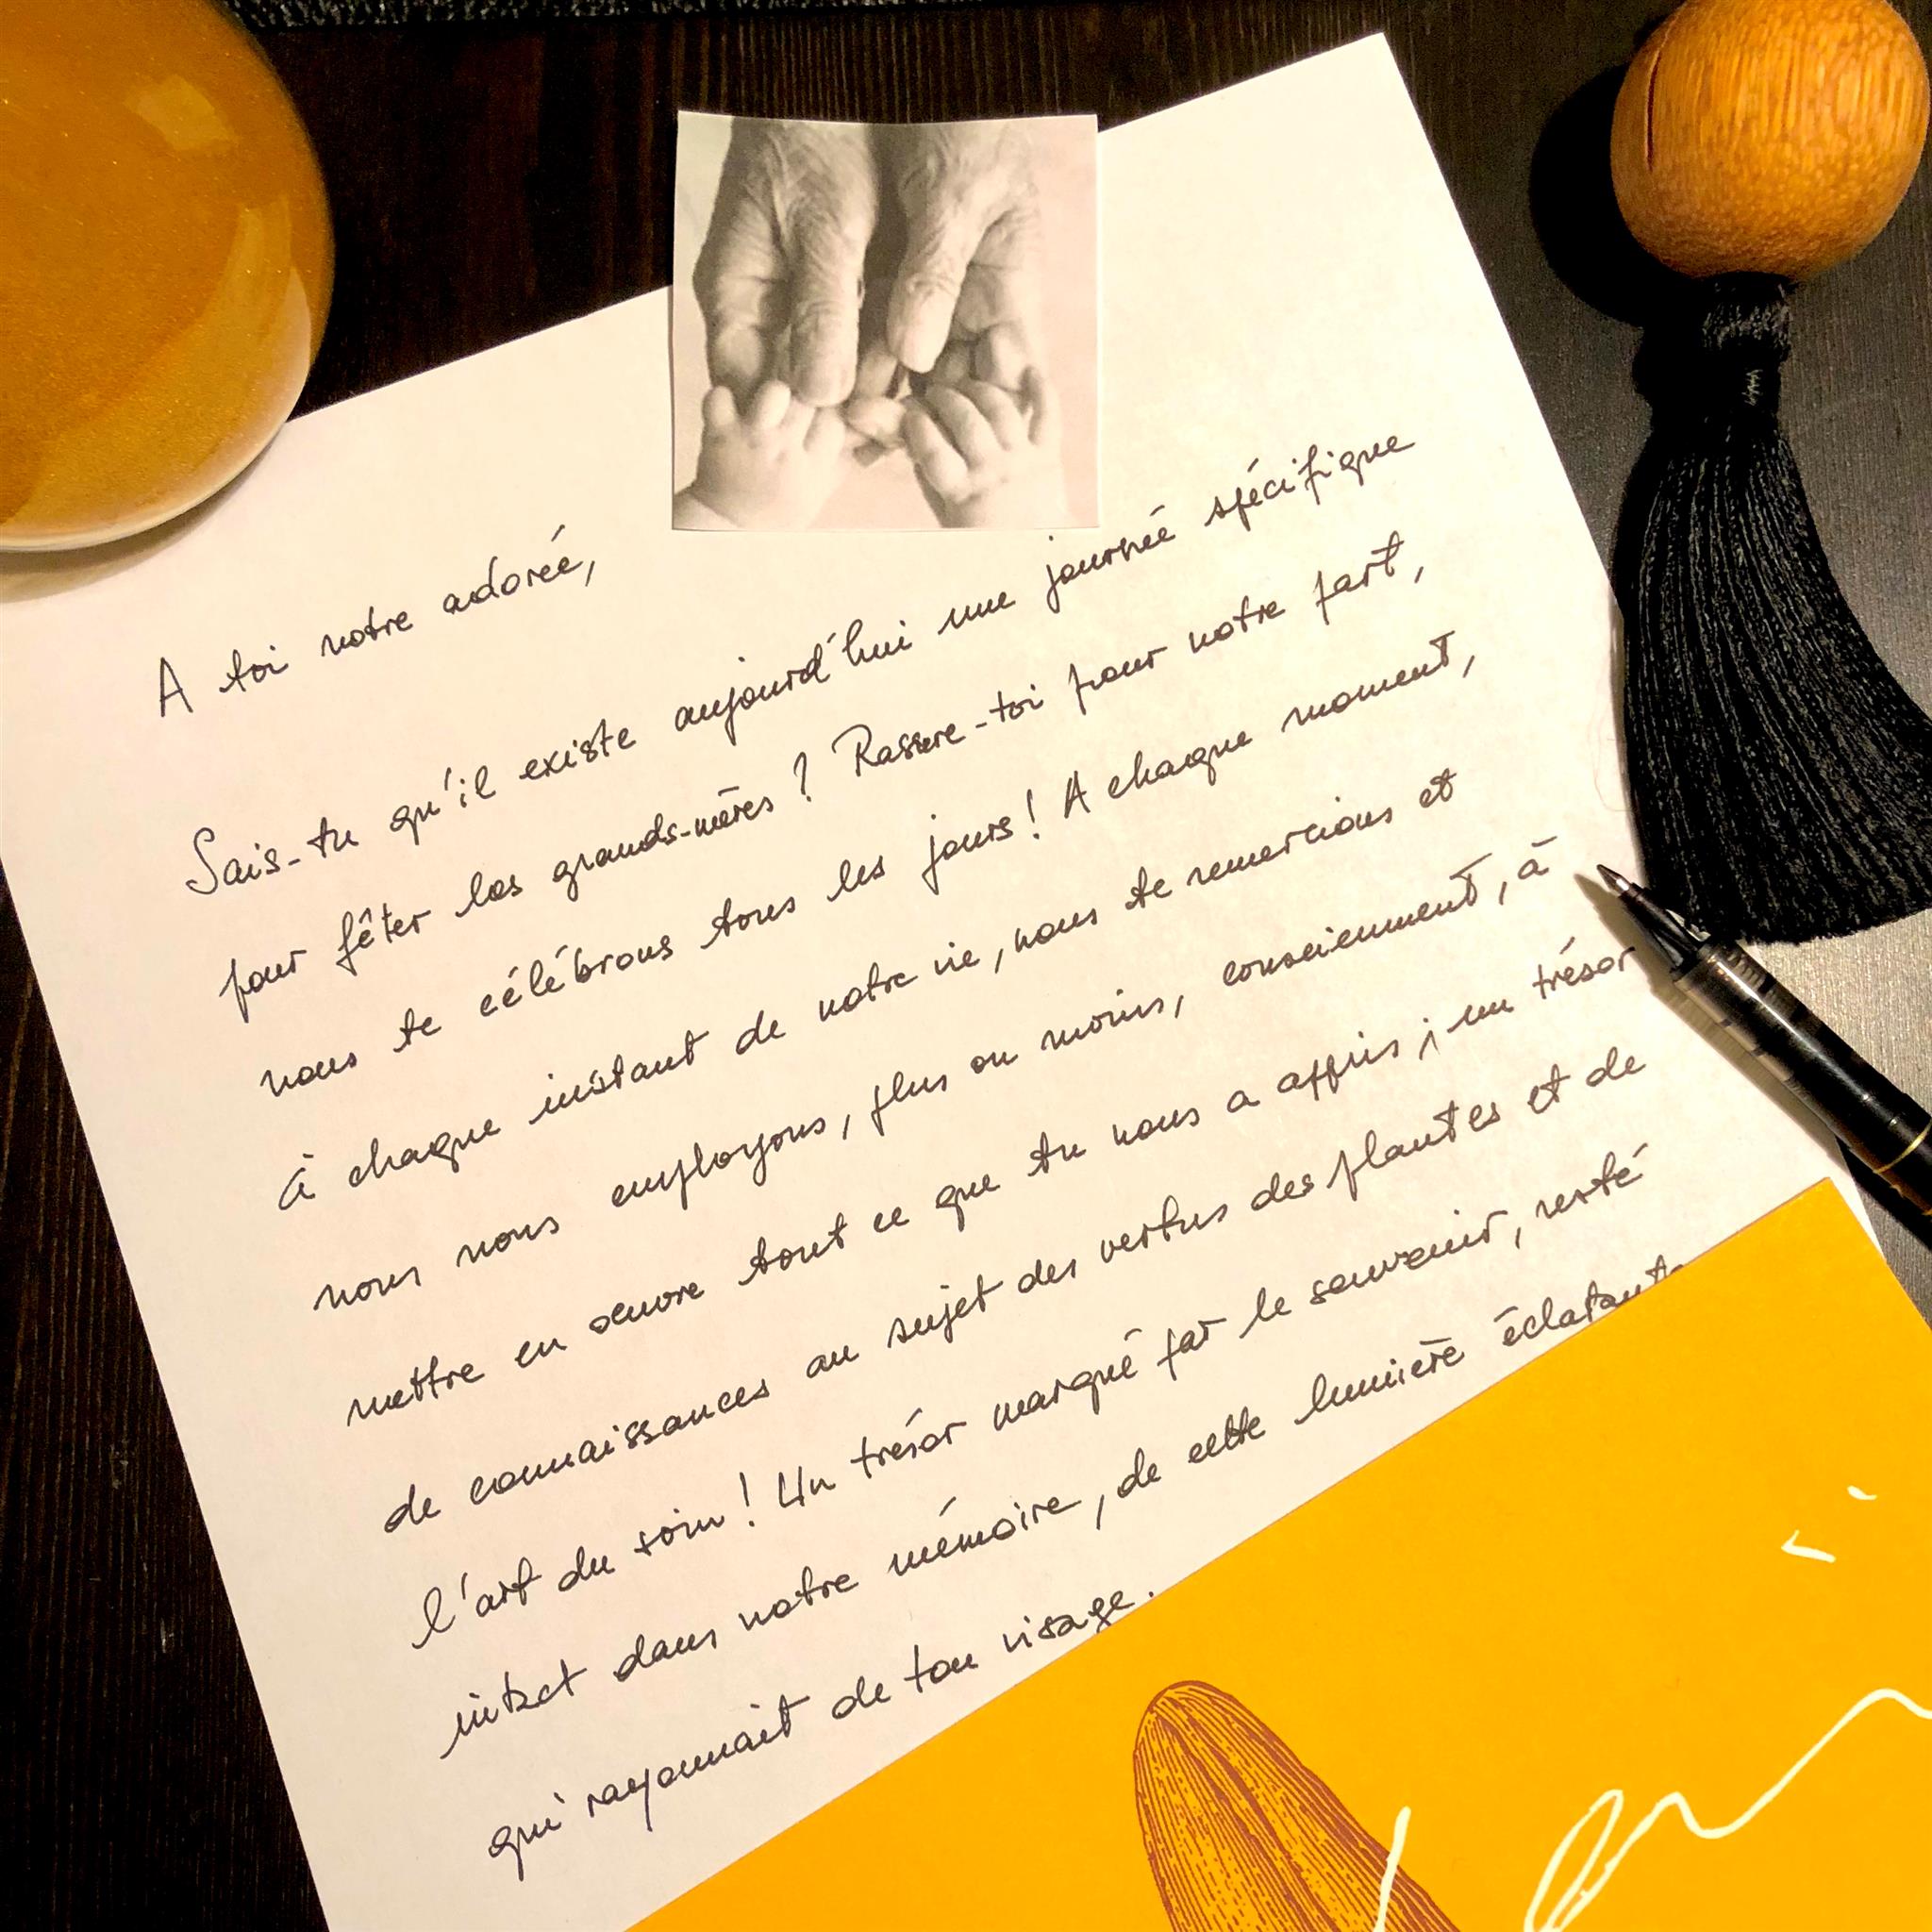 A toi notre adorée,
Sais-tu qu'il existe aujourd'hui une journée spécifique
pour fêter les grands-mères ? Rassure-toi pour notre part,
nous te célébrons tous les jours ! A chaque moment,
à chaque instant de notre vie, nous te remercions et
nous nous employons, plus ou moins, consciemment, à
mettre en oeuvre tout ce que tu nous a appris ; un trésor
de connaissances au sujet des vertus des plantes et de
l'art du soin ! Un trésor marqué par le souvenir, resté
intact dans notre mémoire, de cette lumière éclatante
qui rayonnait de ton visage.